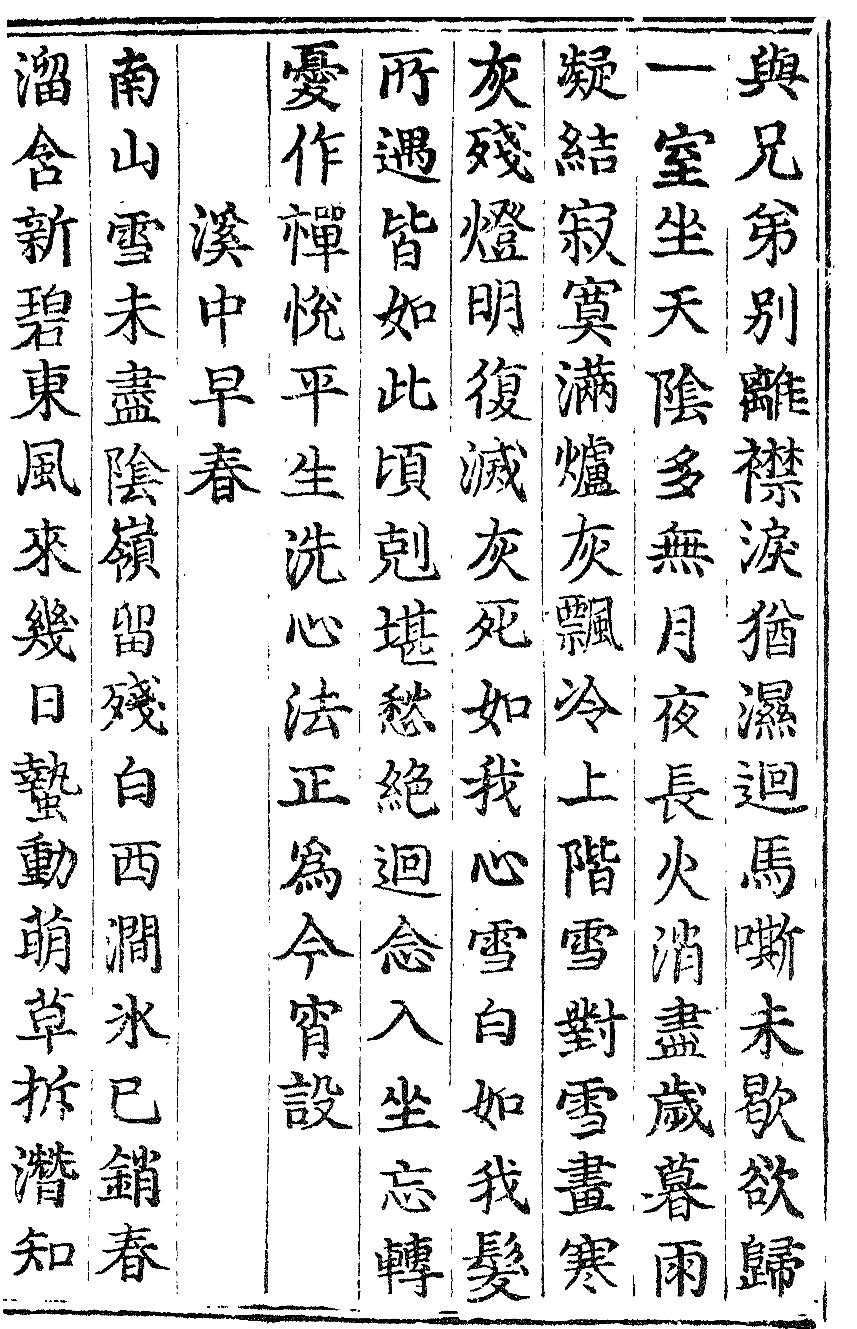 與兄弟別離襟淚猶濕迴馬嘶未歇欲歸
一室坐天陰多無月夜長火消盡歲暮雨
凝結寂寞滿爐灰飄冷上階雪對雪畫寒
灰殘燈明復滅灰死如我心雪白如我髮
所遇皆如此頃剋堪愁絕迴念入坐忘轉
憂作禪悅平生洗心法正為今宵設
溪中早春
南山雪未盡陰嶺留殘白西澗氷已銷春
溜含新碧東風來幾日蟄動萌草拆潛知